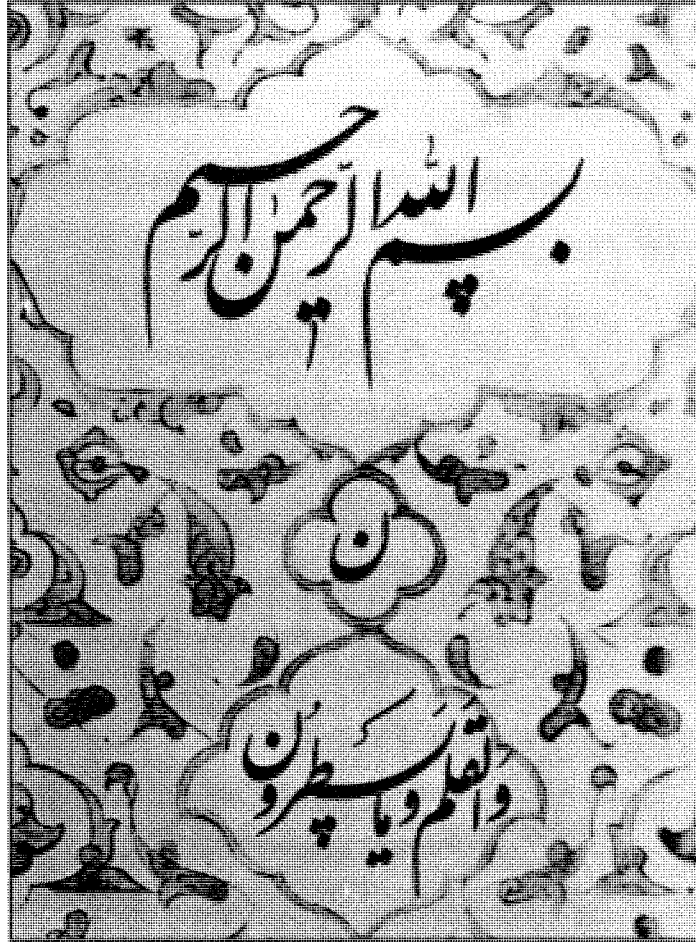 بسم الله الرحمن الرحیم
ن
والقلم و ما یسطرون